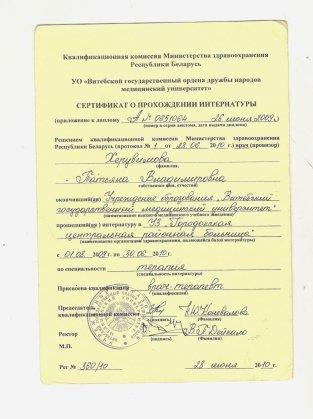 Квалификационная комиссия Министерства здравоохранения
Республики Беларусь
УО «Витебский государственный ордена дружбы народов
медицинский университет»
СЕРТИФИКАТ О ПРОХОЖДЕНИИ ИНТЕРНАТУРЫ
(приложение к диплому А № 0651064 26 июня 2009)
(номер и серия диплома, дата выдачи диплома)
Решением квалификационной комиссии Министерства здравоохранения
Республики Беларусь (протокол № 1 от 28.06 2010 г.) врач (провизор)
Херувимова
(фамилия,
Татьяна Владимировна
собственное имя, отчество)
окончивший(ая) Учреждение образования "Витебский
государственный медицинский университет"
(наименование высшего медицинского учебного заведения)
прошедший(ая) интернатуру в УЗ "Городокская
центральная районная больница"
(наименование организации здравоохранения, являющейся базой интернатуры)
с 01.08 2009 г. по 30.06 2010 г.
по специальности терапия
(специальность интернатуры)
Присвоена квалификация врач-терапевт
Председатель
квалификационной комиссии А.Ю. Коневалова
(подпись) (Фамилия)
Ректор В.П. Дейкало
(подпись) (Фамилия)
М.П.
Рег № 380/10 28 июня 2010 г.